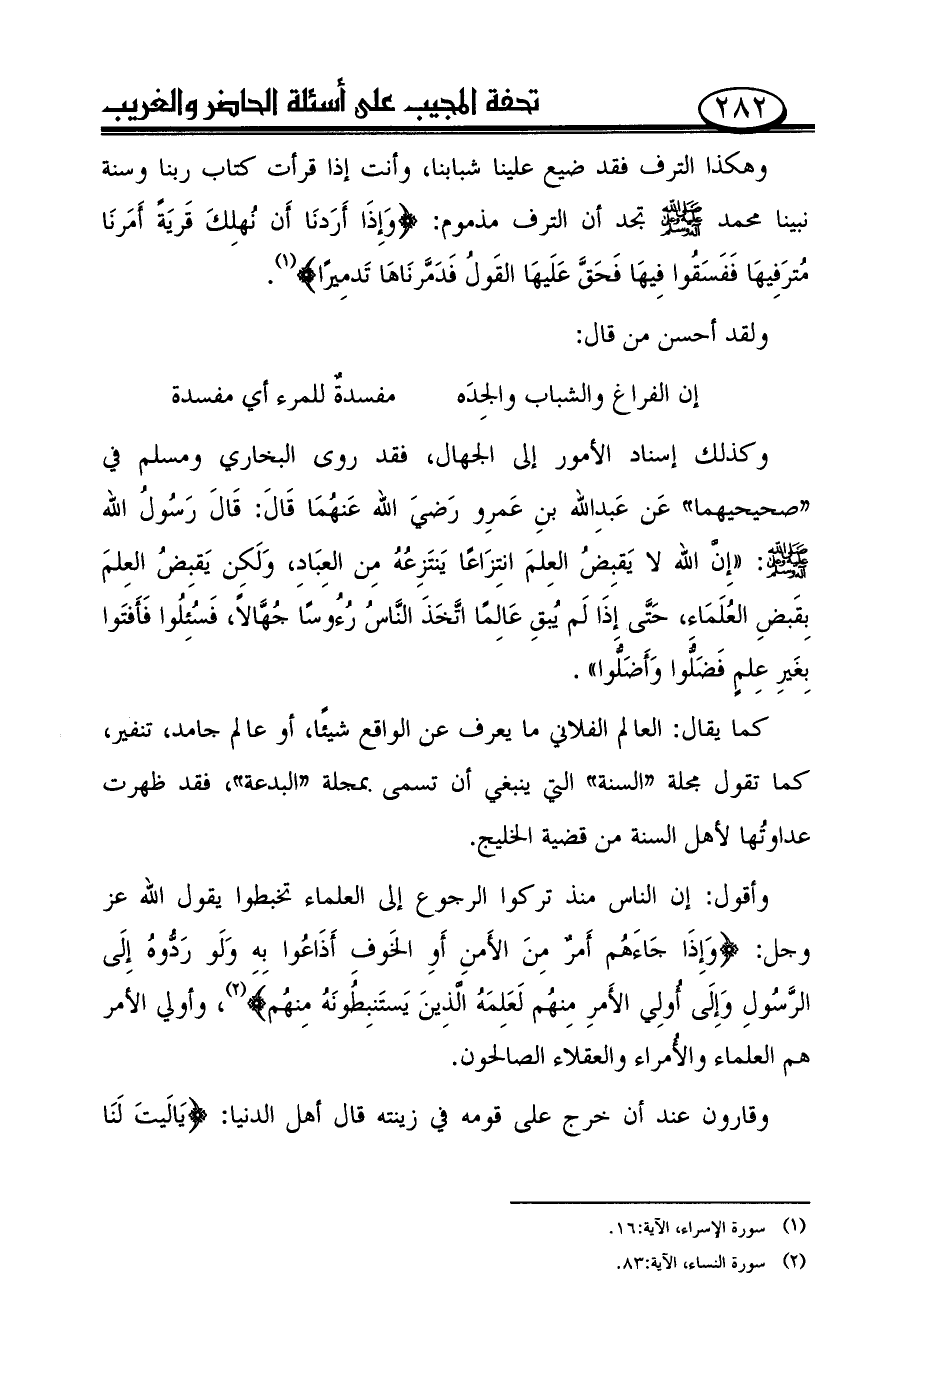 ٢٨٢
تحفة المجيب على أسئلة الحاضر والغريب
وهكذا الترف فقد ضيع علينا شبابنا، وأنت إذا قرأت كتاب ربنا وسنة
نبينا محمد ﷺ تجد أن الترف مذموم: ﴿وَإِذَا أَرَدنَا أَن نُهلِكَ قَريَةً أَمَرنَا
مُترَفِيهَا فَفَسَقُوا فِيهَا فَحَقَّ عَلَيهَا القَولُ فَدَمَّرنَاهَا تَدمِيرًا﴾(١).
ولقد أحسن من قال:
إن الفراغ والشباب والجِدَه مفسدةٌ للمرء أي مفسدة
وكذلك إسناد الأمور إلى الجهال، فقد روى البخاري ومسلم في
«صحيحيهما» عَن عَبدِالله بنِ عَمرٍو رَضيَ الله عَنهُمَا قَالَ: قَالَ رَسُولُ الله
ﷺ: «إِنَّ الله لا يَقبِضُ العِلمَ انتِزَاعًا يَنتَزِعُهُ مِن العِبَادِ، وَلَكِن يَقبِضُ العِلمَ
بِقَبضِ العُلَمَاءِ، حَتَّى إِذَا لَم يُبقِ عَالِمًا اتَّخَذَ النَّاسُ رُءُوسًا جُهَّالاً، فَسُئِلُوا فَأَفتَوا
بِغَيرِ عِلمٍ فَضَلُّوا وَأَضَلُّوا» .
كما يقال: العالم الفلاني ما يعرف عن الواقع شيئًا، أو عالم جامد، تنفير،
كما تقول مجلة «السنة» التي ينبغي أن تسمى بمجلة «البدعة»، فقد ظهرت
عداوتُها لأهل السنة من قضية الخليج.
وأقول: إن الناس منذ تركوا الرجوع إلى العلماء تخبطوا يقول الله عز
وجل: ﴿وَإِذَا جَاءَهُم أَمرٌ مِنَ الأَمنِ أَوِ الخَوفِ أَذَاعُوا بِهِ وَلَو رَدُّوهُ إِلَى
الرَّسُولِ وَإِلَى أُولِي الأَمرِ مِنهُم لَعَلِمَهُ الَّذِينَ يَستَنبِطُونَهُ مِنهُم﴾(٢)، وأولي الأمر
هم العلماء والأُمراء والعقلاء الصالحون.
وقارون عند أن خرج على قومه في زينته قال أهل الدنيا: ﴿يَالَيتَ لَنَا
(١) سورة الإسراء، الآية:١٦.
(٢) سورة النساء، الآية:٨٣.